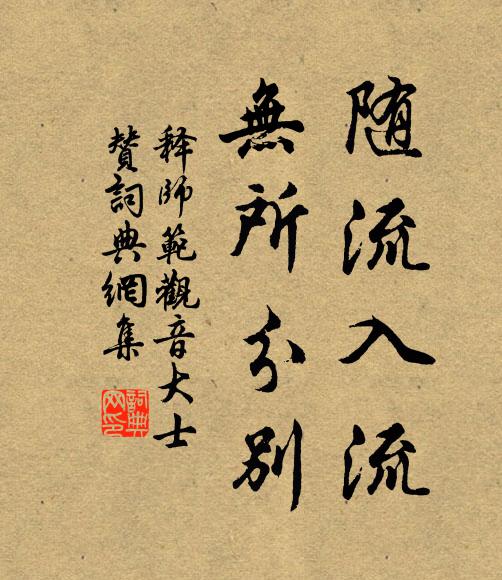 随流入流
無所分別
释師範觀音大士
贊詞典網集
詞典
网印